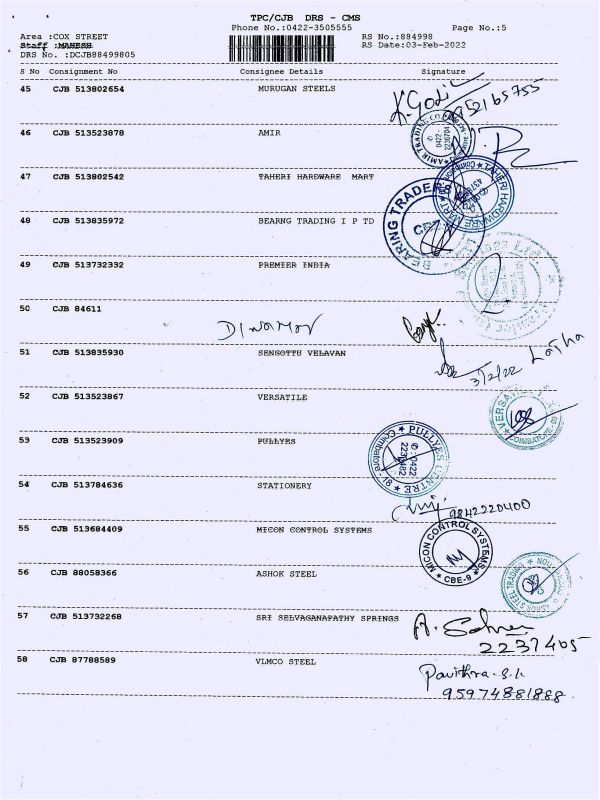 TPC/CJB DRS - CMS
Phone No.:0422-3505555 Page No.:5
Area :COX STREET RS No.:884998
Staff :MAHESH RS Date:03-Feb-2022
DRS No. :DCJB88499805
S No Consignment No Consignee Details Signature
45 CJB 513802654 MURUGAN STEELS
K. Godi
952165755
46 CJB 513523878 AMIR
AMIR TRADING CO
0422
47 CJB 513802542 TAHERI HARDWARE MART
TAHERI HARDWARE MART
48 CJB 513835972 BEARNG TRADING I P TD
BEARING TRADER
49 CJB 513732332 PREMIER INDIA
50 CJB 84611
51 CJB 513835930 SENGOTTU VELAVAN
3/2/22 Latha
52 CJB 513523867 VERSATILE
VERSA
COIMBATORE
53 CJB 513523909 PULLYES
PULLYES CENTRE
Coimbatore
0422
54 CJB 513784636 STATIONERY
9842220400
55 CJB 513684409 MICON CONTROL SYSTEMS
MICON CONTROL SYSTEMS
CBE-9
56 CJB 88058366 ASHOK STEEL
ASHOK STEEL TRADING
57 CJB 513732268 SRI SELVAGANAPATHY SPRINGS
2237465
58 CJB 87788589 VLMCO STEEL
Pavithra. S.K
95974881888